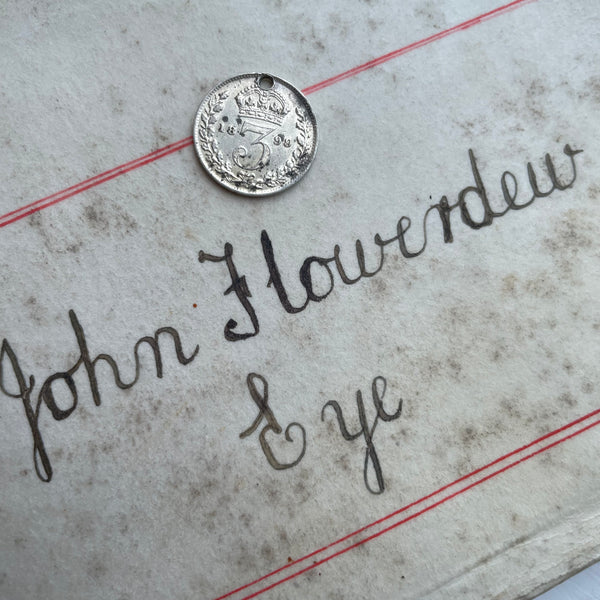 18 3 98
John Flowerdew
Eye